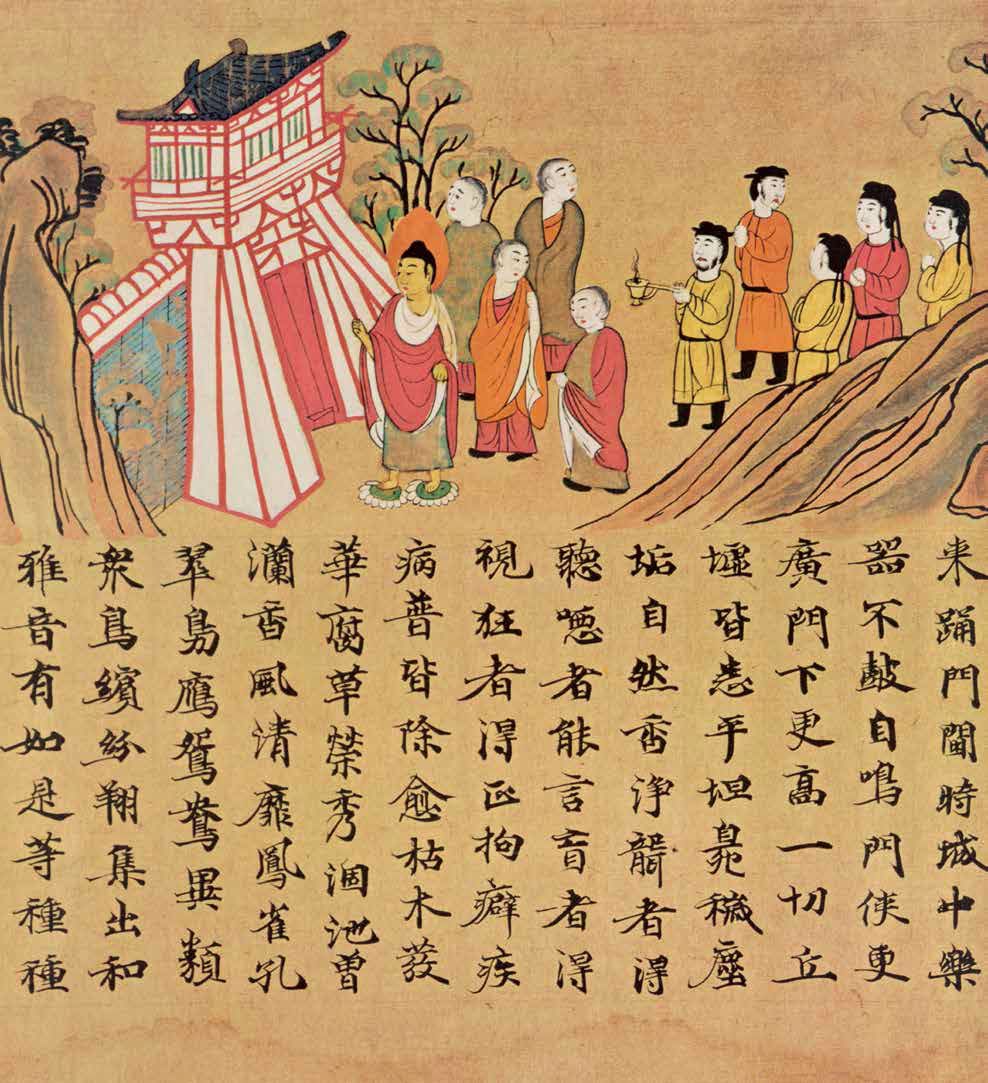 来踊門閫時城中樂
器不鼓自鳴門俠更
廣門下更高一切丘
墟皆悉平坦臭穢塵
垢自然香浄聾者得
聽者能言盲者得
視狂者得正拘癖疾
病普皆除愈枯木發
華腐草榮秀涸池曽
瀾香風清靡鳳雀孔
翠鳬鴈鴛鴦異類
衆鳥繽紛翔集出和
雅音有如是等種種